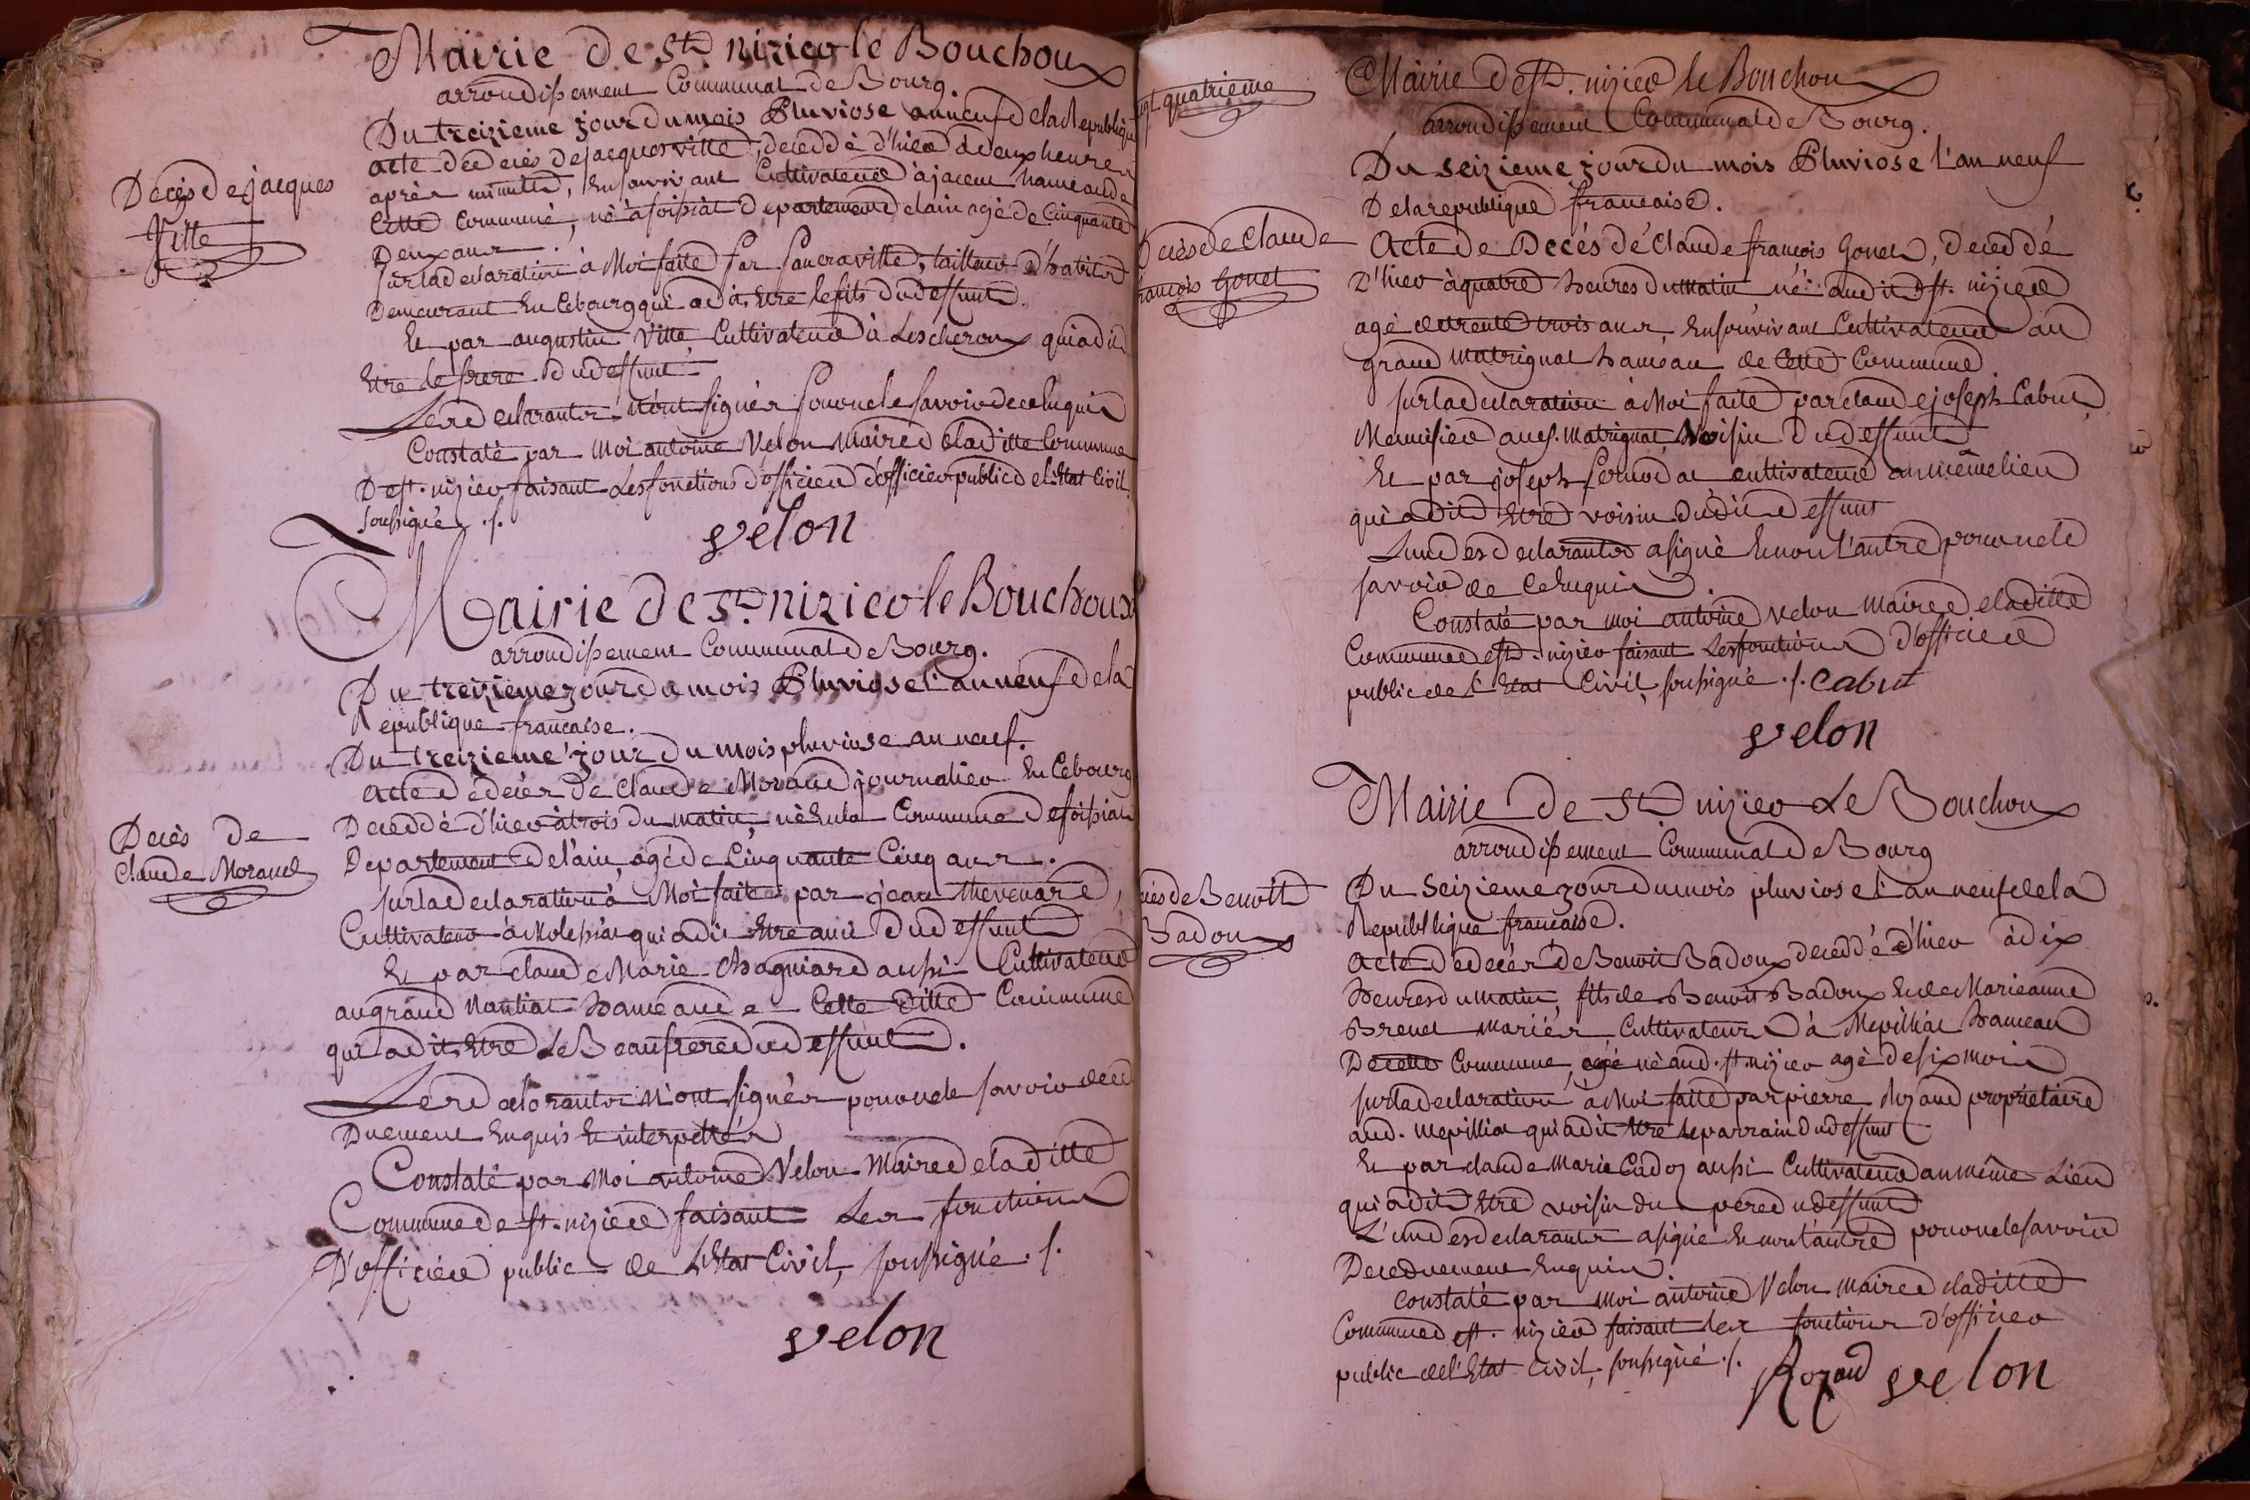 Mairie de St nizier le Bouchoux
arrondissement Communal de Bourg.
Du treizieme jour du mois Pluviose an neuf de la Republique
acte de decès de jacques ville, deceddé d'hier à deux heures
après minuit, En son vivant Cultivateur à jaceur hameau de
Cette Commune, né à foissiat Departement de lain agé de Cinquante
Deux ans.
Decès de jacques
Ville
sur la declaration à Moi faite par ville, tailleur d'habits
Demeurant En Ce bourg qui a dit Etre le fils dud deffunt.
Et par augustin Ville Cultivateur à Lescheroux qui a dit
Etre le frere dud deffunt.
Les declarants n'ont signés pour ne le savoir de ce Enquis
Constaté par Moi antoine Velon Maire de la ditte Commune
De st. nizier faisant Les fonctions d'officier d'officier public de l'Etat Civil
soussigné ./.
velon
Mairie de St. nizier le Bouchoux
arrondissement Communal de Bourg.
Du treizieme jour du mois Pluviose l'an neuf de la
Republique francaise.
Du treizieme jour du mois pluviose an neuf.
acte de decès de Claude Morand journalier En Ce bourg
Deceddé d'hier à trois du matin, né En la Commune de foissiat
Departement de l'ain, agé de Cinquante Cinq ans.
Decès de
Claude Morand
sur la declaration à Moi faite par jean thevenard,
Cultivateur à Molissiat qui a dit Etre ami dud deffunt
Et par claude Marie Chagniard aussi Cultivateur
au grand Nantiat hameau de Cette ditte Commune
qui a dit Etre Le Beaufrere dud deffunt.
Les declarants n'ont signés pour ne le savoir de ce
Duement Enquis Et interpellés
Constaté par Moi antoine Velon Maire de la ditte
Commune de st. nizier faisant Les fonctions
D'officier public de L'Etat Civil, soussigné ./.
velon
quatrieme
Mairie de St. nizier le Bouchoux
arrondissement Communal de Bourg.
Du seizieme jour du mois Pluviose l'an neuf
De la republique francaise.
Decès de Claude
francois Gonet
Acte de Decés de Claude francois Gonet, deceddé
d'hier à quatre heures du Matin né aud dit St. nizier
agé de trente trois ans, En son vivant Cultivateur au
grand Matrignat hameau de Cette Commune
sur la declaration à Moi faite par claude joseph Cabut
Menuisier aud. Matrignat Voisin Dud deffunt
Et par joseph cultivateur au même lieu
qui a dit Etre voisin dudit deffunt
L'un des declarants a signé Et non l'autre pour ne le
savoir de Ce Enquis.
Constaté par Moi antoine velon Maire de la ditte
Commune de St. nizier faisant Les fonctions d'officier
public de L'Etat Civil, soussigné ./. Cabut
velon
Mairie de St nizier Le Bouchoux
arrondissement Communal de Bourg
Du Seizieme jour du mois pluviose l'an neuf de la
Republlique francaise.
Decès de Benoit
Badoux
acte de decès de Benoit Badoux deceddé d'hier à dix
heures du matin, fils de Benoit Badoux Et de Marie anne
Brevet mariés Cultivateurs à Mepilliat hameau
De cette Commune, agé né aud. st. nizier agé de six mois
sur la declaration à Moi faite par pierre Rozand proprietaire
aud. Mepilliat qui a dit Etre le parrain Dud deffunt
Et par claude Marie Cadoz aussi Cultivateur au même Lieu
qui a dit Etre voisin du pere dud deffunt
L'un des declarants a signé Et non l'autre pour ne le savoir
De ce duement Enquis.
Constaté par Moi antoine Velon Maire de la ditte
Commune de st. nizier faisant les fonctions d'officier
public de l'Etat Civil, soussigné ./. Rozand velon